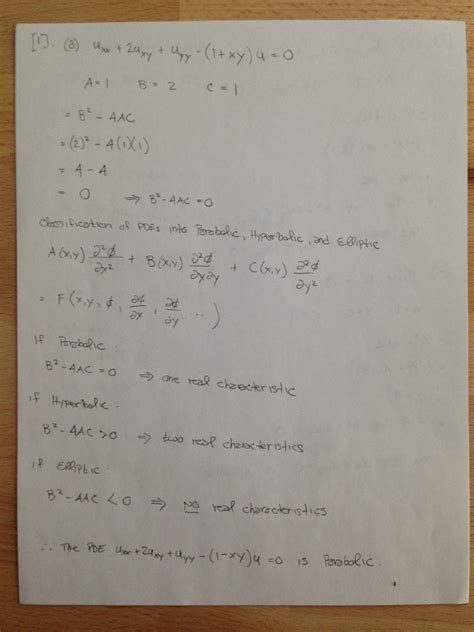 [1]. (3) u_xx + 2u_xy + u_yy - (1+xy)u = 0
A=1 B = 2 C = 1
= B² - 4AC
= (2)² - 4(1)(1)
= 4 - 4
= 0 ⇒ B² - 4AC = 0
Classification of PDEs into Parabolic, Hyperbolic, and Elliptic
A(x,y) ∂²ϕ/∂x² + B(x,y) ∂²ϕ/∂x∂y + C(x,y) ∂²ϕ/∂y²
= F(x, y, ϕ, ∂ϕ/∂x, ∂ϕ/∂y ...)
If Parabolic:
B² - 4AC = 0 ⇒ one real characteristic
if Hyperbolic:
B² - 4AC > 0 ⇒ two real characteristics
if Elliptic:
B² - 4AC < 0 ⇒ no real characteristics
∴ The PDE u_xx + 2u_xy + u_yy - (1-xy)u = 0 is Parabolic.